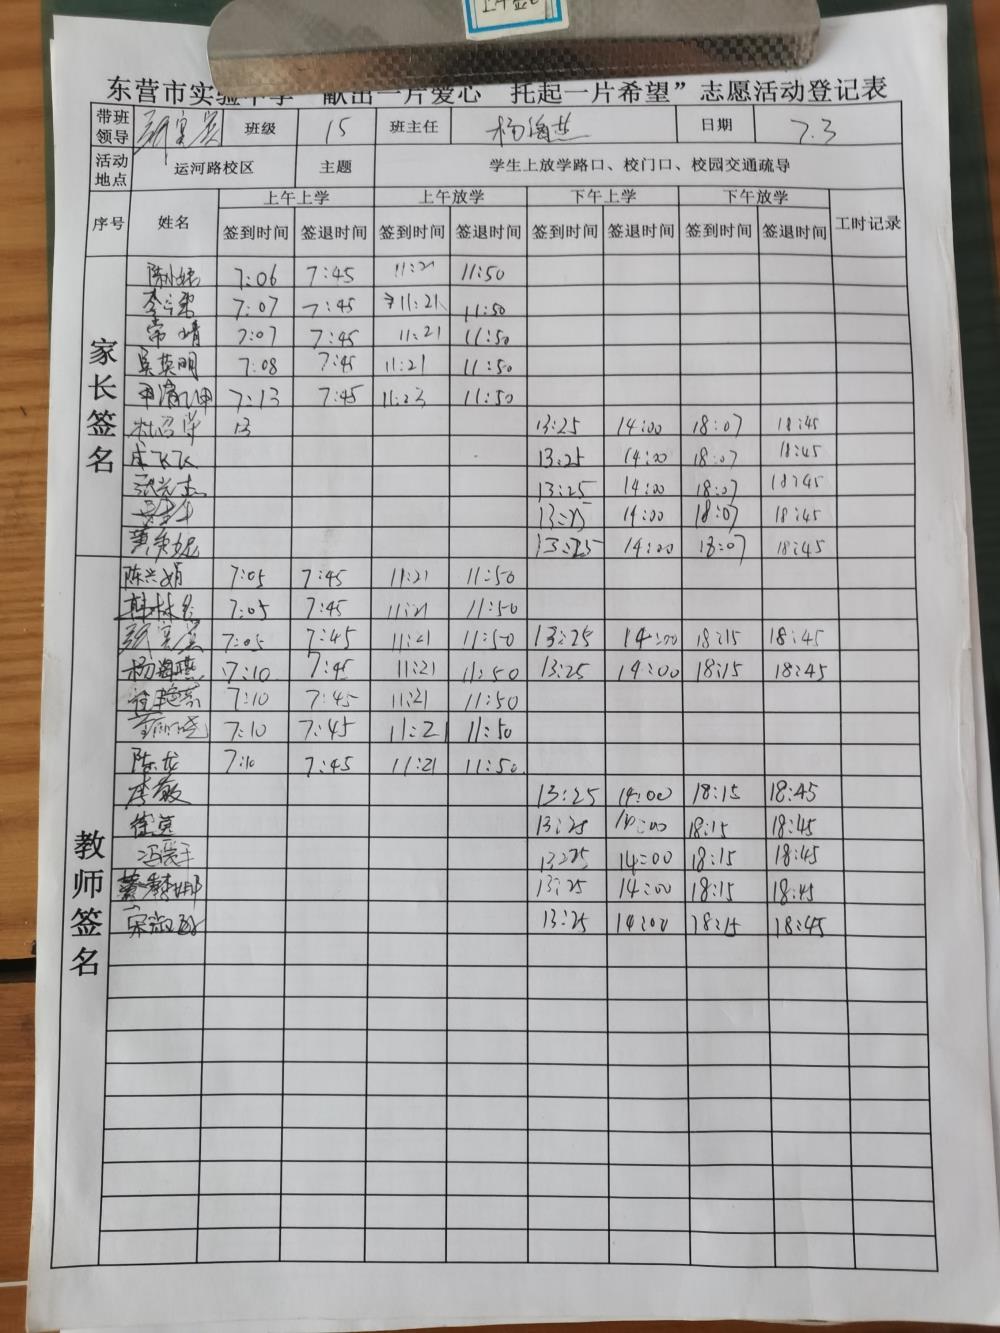 东营市实验中学“献出一片爱心 托起一片希望”志愿活动登记表
带班领导 班级 15 班主任 杨海燕 日期 7.3
活动地点 运河路校区 主题 学生上放学路口、校门口、校园交通疏导
序号 姓名 上午上学 上午放学 下午上学 下午放学 工时记录
签到时间 签退时间 签到时间 签退时间 签到时间 签退时间 签到时间 签退时间
家长签名
7:06 7:45 11:21 11:50
7:07 7:45 11:21 11:50
常靖 7:07 7:45 11:21 11:50
吴英明 7:08 7:45 11:21 11:50
7:13 7:45 11:23 11:50
13 13:25 14:00 18:07 18:45
13:25 14:00 18:07 18:45
13:25 14:00 18:07 18:45
13:25 14:00 18:07 18:45
13:25 14:00 18:07 18:45
教师签名
陈兴娟 7:05 7:45 11:21 11:50
7:05 7:45 11:21 11:50
7:05 7:45 11:21 11:50 13:25 14:00 18:15 18:45
杨海燕 7:10 7:45 11:21 11:50 13:25 14:00 18:15 18:45
7:10 7:45 11:21 11:50
7:10 7:45 11:21 11:50
陈龙 7:10 7:45 11:21 11:50
李敏 13:25 14:00 18:15 18:45
13:25 14:00 18:15 18:45
13:25 14:00 18:15 18:45
13:25 14:00 18:15 18:45
13:25 14:00 18:15 18:45